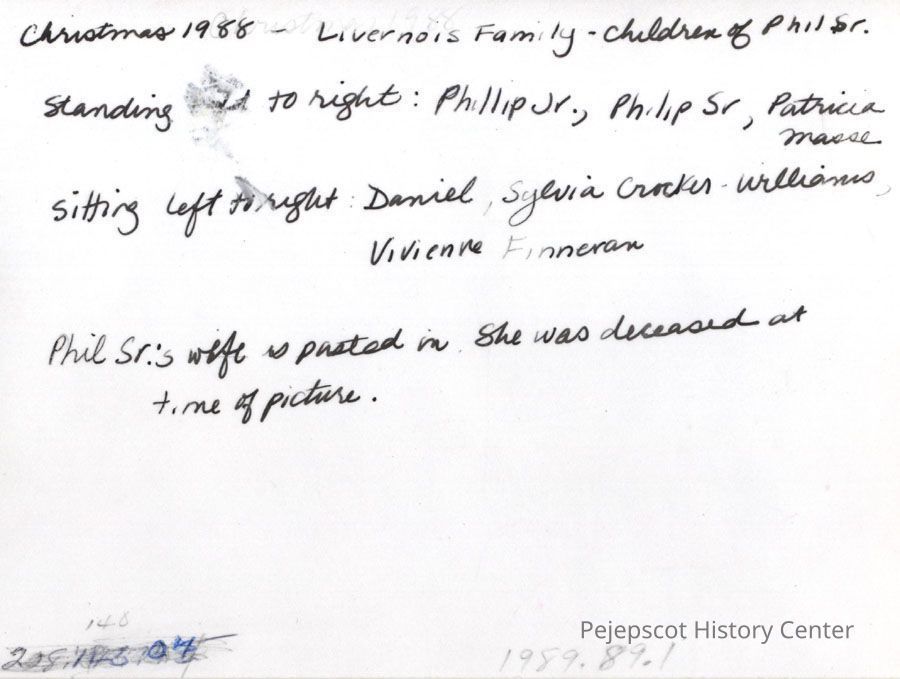 Christmas 1988 - Livernois Family - children of Phil Sr.
Standing to right: Phillip Jr., Philip Sr, Patricia
Masse
Sitting left to right: Daniel, Sylvia Crocker-Williams,
Vivienne Finneran
Phil Sr.'s wife is pasted in. She was deceased at
time of picture.
148
Pejepscot History Center
1989.89.1